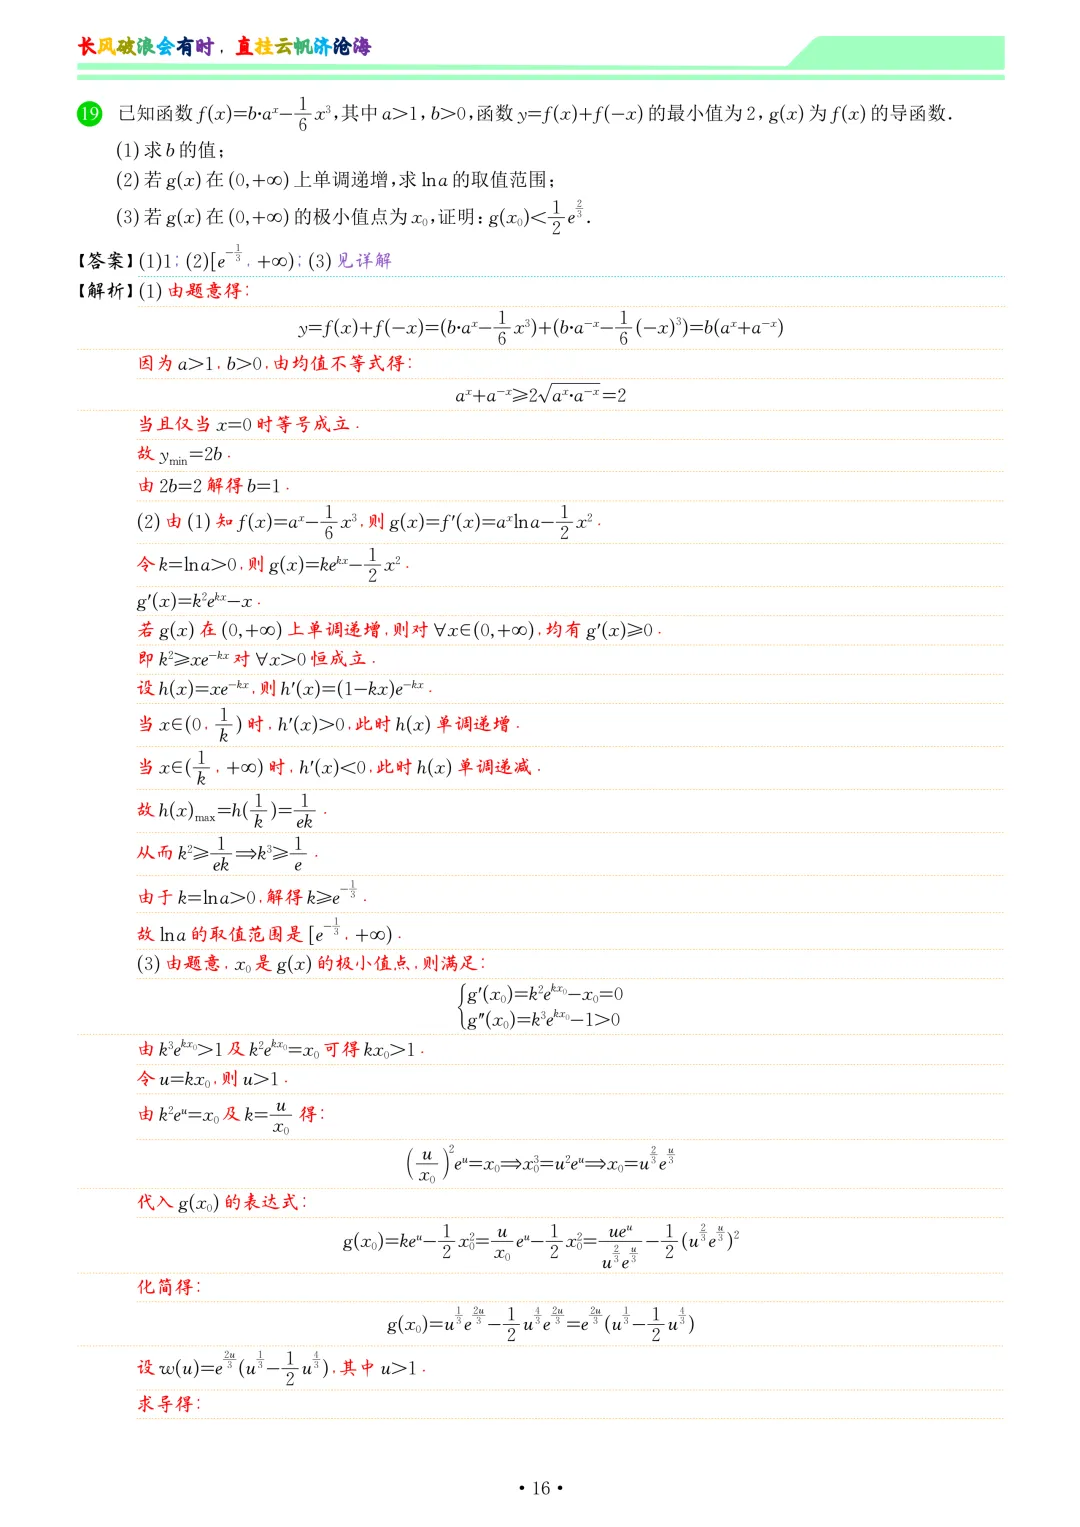 长风破浪会有时，直挂云帆济沧海
19 已知函数 f(x)=b·aˣ−1/6 x³,其中 a>1, b>0,函数 y=f(x)+f(−x) 的最小值为 2, g(x) 为 f(x) 的导函数.
(1) 求 b 的值;
(2) 若 g(x) 在 (0,+∞) 上单调递增,求 lna 的取值范围;
(3) 若 g(x) 在 (0,+∞) 的极小值点为 x₀,证明: g(x₀)<1/2 e^(2/3).
【答案】(1)1; (2)[e^(−1/3), +∞); (3) 见详解
【解析】(1) 由题意得:
y=f(x)+f(−x)=(b·aˣ−1/6 x³)+(b·a⁻ˣ−1/6 (−x)³)=b(aˣ+a⁻ˣ)
因为 a>1, b>0,由均值不等式得:
aˣ+a⁻ˣ⩾2√(aˣ·a⁻ˣ)=2
当且仅当 x=0 时等号成立.
故 y_min=2b.
由 2b=2 解得 b=1.
(2) 由 (1) 知 f(x)=aˣ−1/6 x³,则 g(x)=f′(x)=aˣlna−1/2 x².
令 k=lna>0,则 g(x)=ke^(kx)−1/2 x².
g′(x)=k²e^(kx)−x.
若 g(x) 在 (0,+∞) 上单调递增,则对 ∀x∈(0,+∞),均有 g′(x)⩾0.
即 k²⩾xe^(−kx) 对 ∀x>0 恒成立.
设 h(x)=xe^(−kx),则 h′(x)=(1−kx)e^(−kx).
当 x∈(0, 1/k) 时, h′(x)>0,此时 h(x) 单调递增.
当 x∈(1/k, +∞) 时, h′(x)<0,此时 h(x) 单调递减.
故 h(x)_max=h(1/k)=1/ek.
从而 k²⩾1/ek⟹k³⩾1/e.
由于 k=lna>0,解得 k⩾e^(−1/3).
故 lna 的取值范围是 [e^(−1/3), +∞).
(3) 由题意, x₀ 是 g(x) 的极小值点,则满足:
{g′(x₀)=k²e^(kx₀)−x₀=0
g″(x₀)=k³e^(kx₀)−1>0
由 k³e^(kx₀)>1 及 k²e^(kx₀)=x₀ 可得 kx₀>1.
令 u=kx₀,则 u>1.
由 k²eᵘ=x₀ 及 k=u/x₀ 得:
(u/x₀)²eᵘ=x₀⟹x₀³=u²eᵘ⟹x₀=u^(2/3)e^(u/3)
代入 g(x₀) 的表达式:
g(x₀)=keᵘ−1/2 x₀²=u/x₀ eᵘ−1/2 x₀²=ueᵘ/(u^(2/3)e^(u/3))−1/2 (u^(2/3)e^(u/3))²
化简得:
g(x₀)=u^(1/3)e^(2u/3)−1/2 u^(4/3)e^(2u/3)=e^(2u/3)(u^(1/3)−1/2 u^(4/3))
设 w(u)=e^(2u/3)(u^(1/3)−1/2 u^(4/3)),其中 u>1.
求导得:
·16·